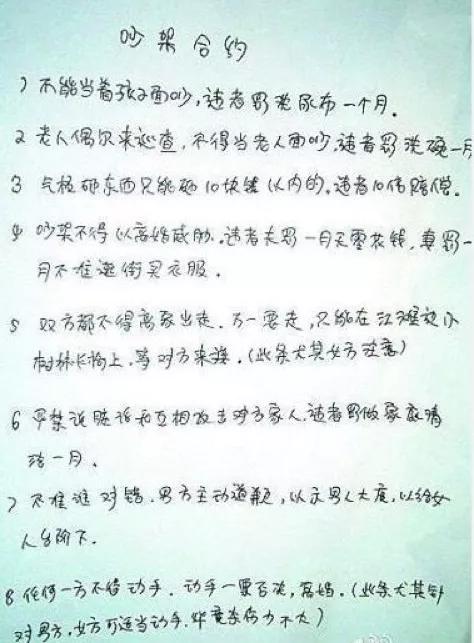 吵架合约
1 不能当着孩子面吵,违者罚洗尿布一个月.
2 老人偶尔来巡查,不得当老人面吵,违者罚洗碗一月
3 气极砸东西只能砸10块钱以内的,违者10倍赔偿.
4 吵架不得以离婚威胁.违者夫罚一月无零花钱,妻罚一
月不准逛街买衣服.
5 双方都不得离家出走.万一要走,只能在江滩边小
树林长椅上,等对方来接.(此条尤其女方注意)
6 严禁说脏话和互相攻击对方家人.违者罚做家庭清
洁一月.
7 不准谁对错.男方主动道歉,以示男人大度,以给女
人台阶下.
8 任何一方不得动手.动手一票否决,离婚.(此条尤其针
对男方,女方可适当动手.毕竟杀伤力不大)